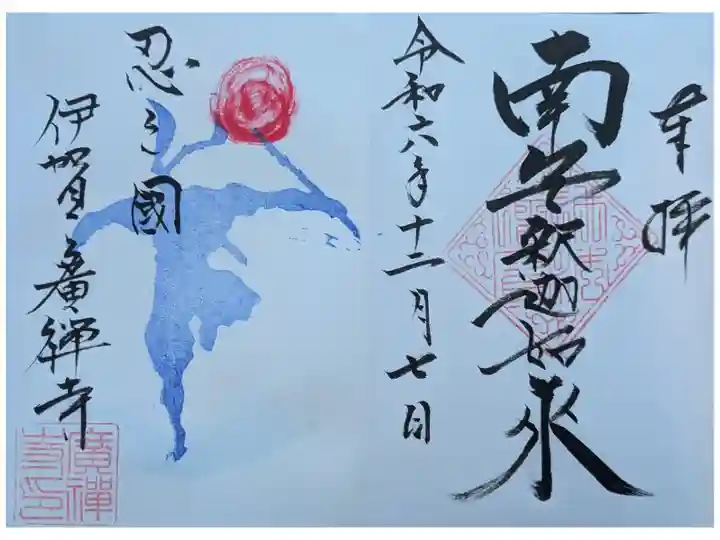 奉拝
南无釈迦如来
令和六年十二月七日
忍之國
伊賀 廣禅寺
廣禅
寺印